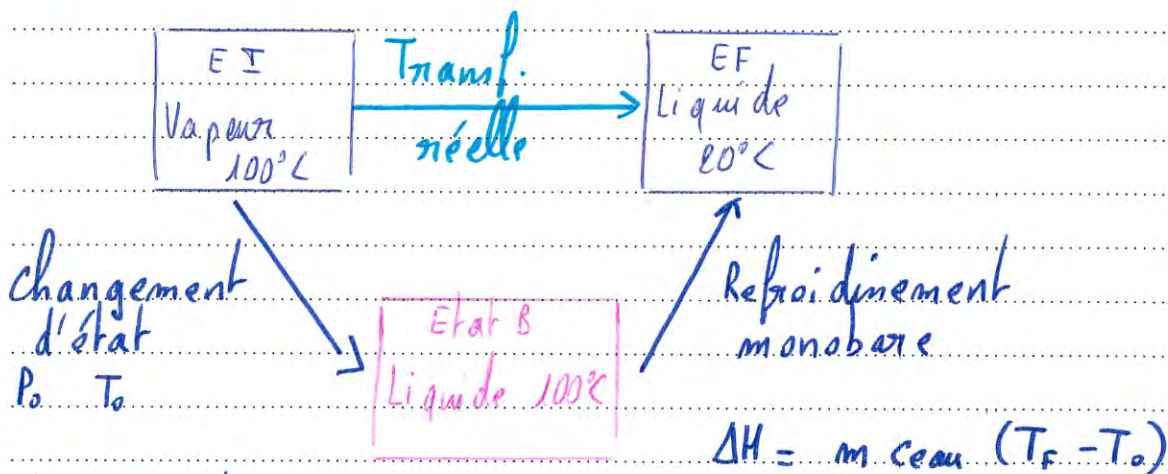 E I
Vapeur
100°C
Transf.
réelle
EF
Liquide
20°C
changement
d'état
P₀ T₀
Etat B
Liquide 100°C
Refroidissement
monobare
ΔH = m ceau (T_F - T₀)